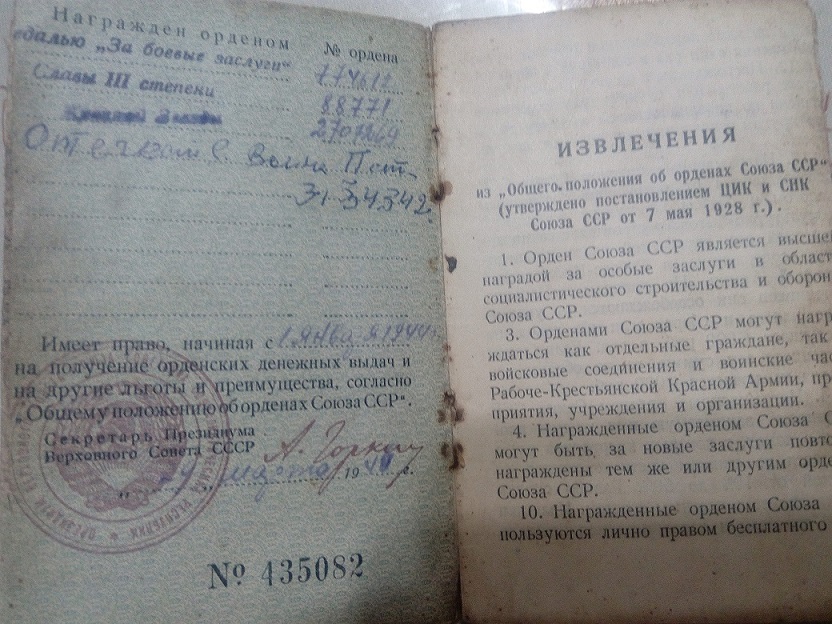 Награжден орденом
№ ордена
едалью „За боевые заслуги“
774612
Славы III степени
88771
Отечествен. Войны IIст.
3134342
Имеет право, начиная с 1 января 1944 г.
на получение орденских денежных выдач и
на другие льготы и преимущества, согласно
„Общему положению об орденах Союза ССР“.
Секретарь Президиума
Верховного Совета СССР
А. Горкин
марта 19 г.
№ 435082
ИЗВЛЕЧЕНИЯ
из „Общего положения об орденах Союза ССР“
(утверждено постановлением ЦИК и СНК
Союза ССР от 7 мая 1928 г.).
1. Орден Союза ССР является высшей
наградой за особые заслуги в област
социалистического строительства и оборон
Союза ССР.
3. Орденами Союза ССР могут награ
ждаться как отдельные граждане, так
войсковые соединения и воинские час
Рабоче-Крестьянской Красной Армии, пре
приятия, учреждения и организации.
4. Награжденные орденом Союза С
могут быть, за новые заслуги повто
награждены тем же или другим орде
Союза ССР.
10. Награжденные орденом Союза
пользуются лично правом бесплатного